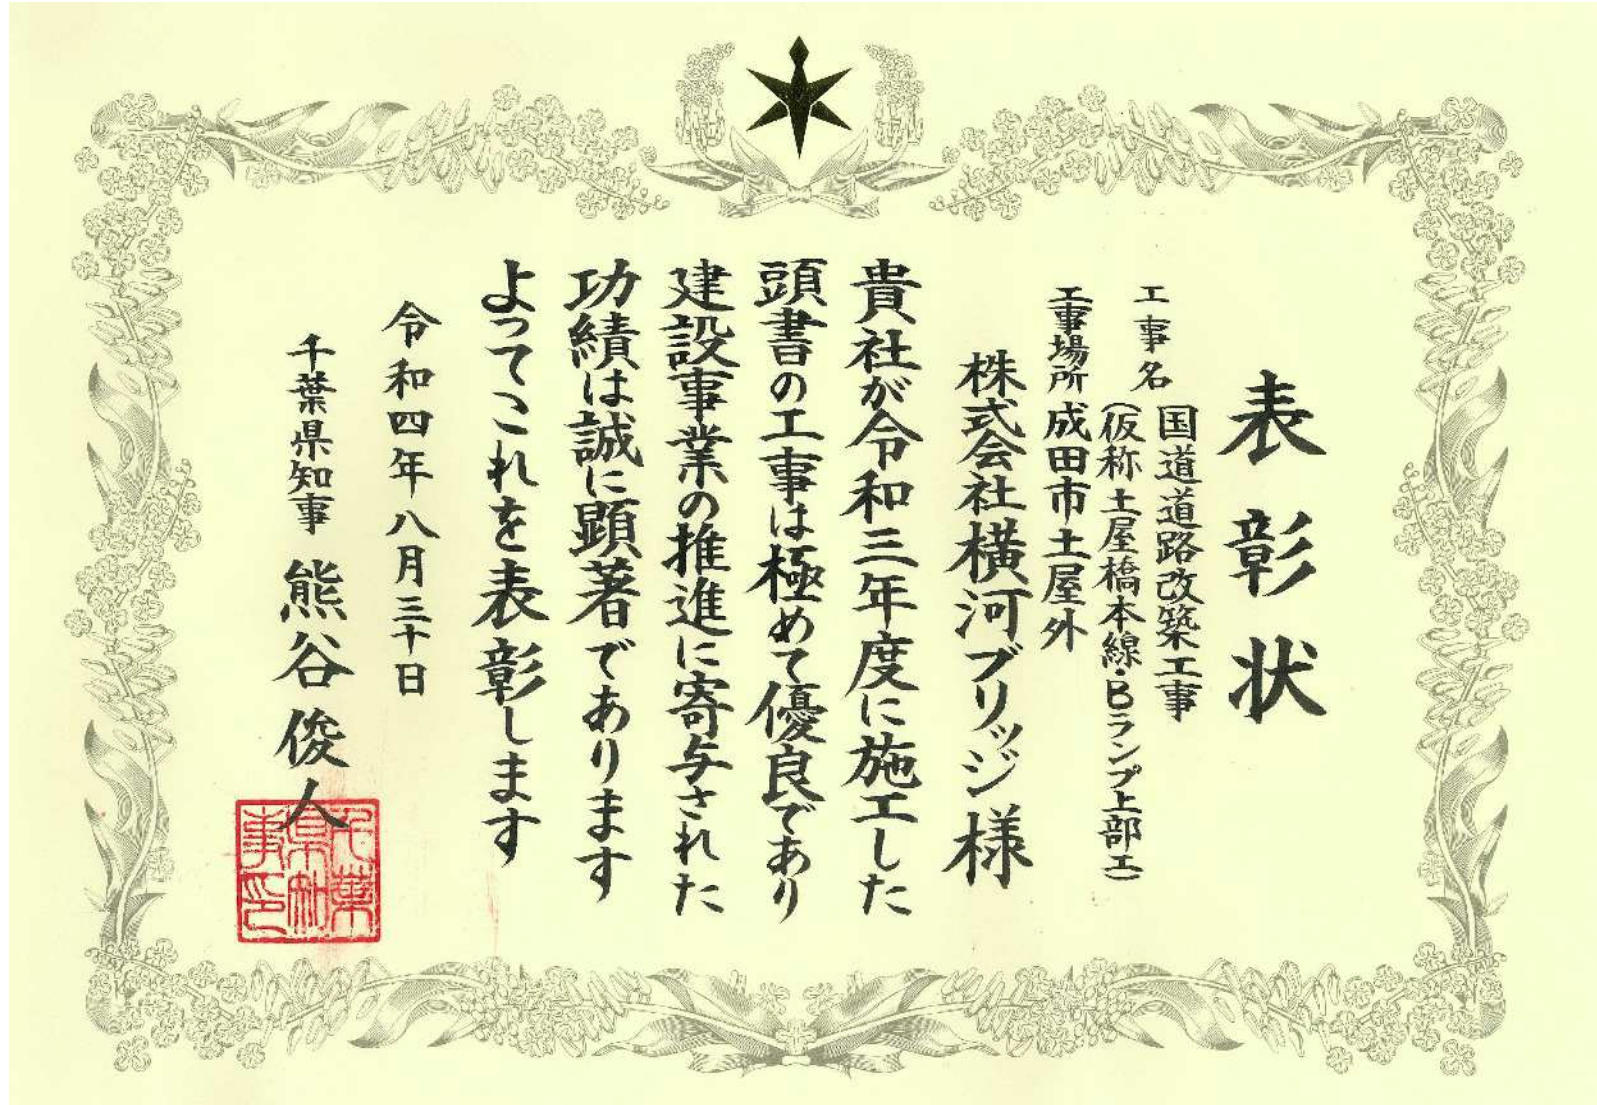 表彰状
工事名 国道道路改築工事
(仮称土屋橋本線・Bランプ上部工)
工事場所 成田市土屋外
株式会社横河ブリッジ様
貴社が令和三年度に施工した
頭書の工事は極めて優良であり
建設事業の推進に寄与された
功績は誠に顕著であります
よってこれを表彰します
令和四年八月三十日
千葉県知事 熊谷俊人
千葉
県知
事印